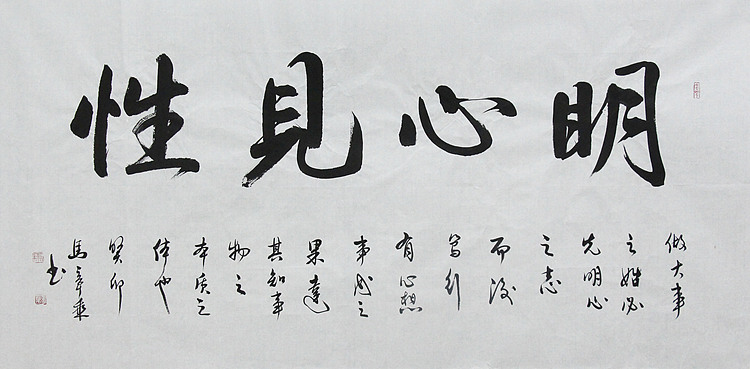 明心見性
做大事
之始必
先明心
之志
而後
篤行
有心想
事成之
果達
其知事
物之
本质之
体也
癸卯
馬彦乘
书